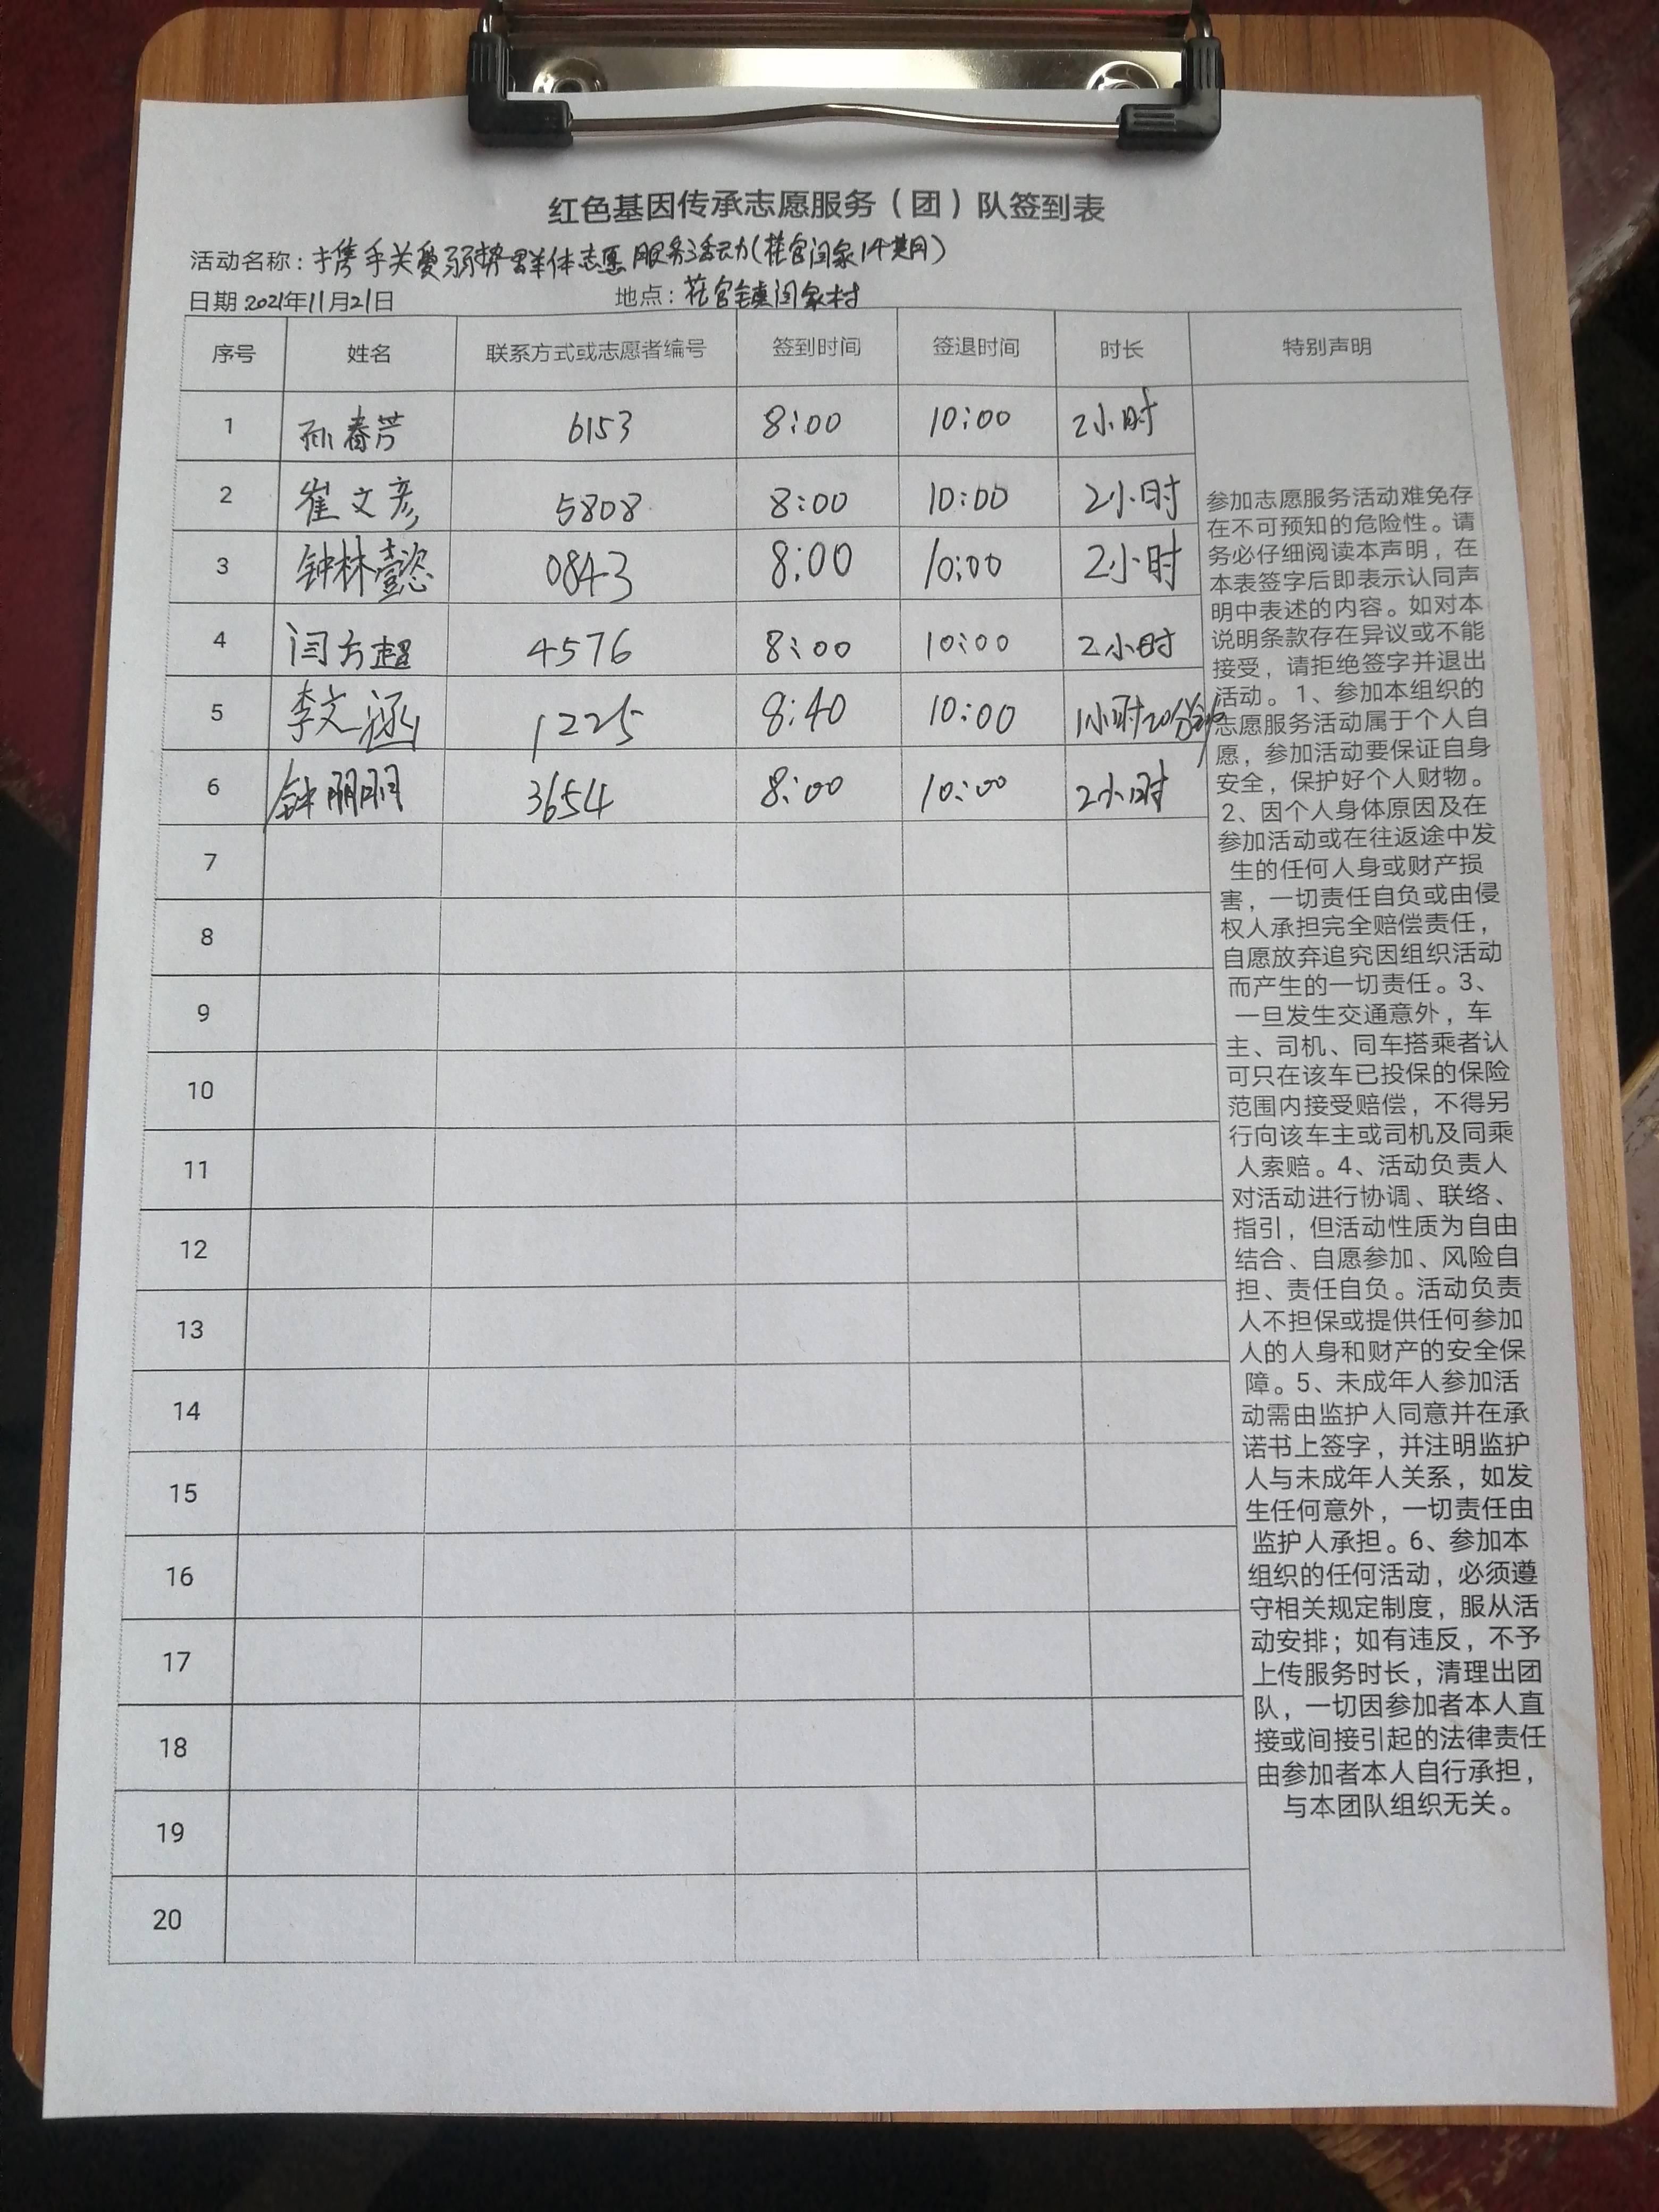 红色基因传承志愿服务（团）队签到表
活动名称：携手关爱弱势群体志愿服务活动（花官闫家
日期 2021年11月21日 地点：花官镇闫家村
序号 姓名 联系方式或志愿者编号 签到时间 签退时间 时长 特别声明
1 孙春芳 6153 8:00 10:00 2小时
2 崔文彦 5808 8:00 10:00 2小时
3 钟林懿 0843 8:00 10:00 2小时
4 闫方超 4576 8:00 10:00 2小时
5 李文涵 1225 8:40 10:00 1小时20分钟
6 钟丽丽 3654 8:00 10:00 2小时
7
8
9
10
11
12
13
14
15
16
17
18
19
20
参加志愿服务活动难免存
在不可预知的危险性。请
务必仔细阅读本声明，在
本表签字后即表示认同声
明中表述的内容。如对本
说明条款存在异议或不能
接受，请拒绝签字并退出
活动。1、参加本组织的
志愿服务活动属于个人自
愿，参加活动要保证自身
安全，保护好个人财物。
2、因个人身体原因及在
参加活动或在往返途中发
生的任何人身或财产损
害，一切责任自负或由侵
权人承担完全赔偿责任，
自愿放弃追究因组织活动
而产生的一切责任。3、
一旦发生交通意外，车
主、司机、同车搭乘者认
可只在该车已投保的保险
范围内接受赔偿，不得另
行向该车主或司机及同乘
人索赔。4、活动负责人
对活动进行协调、联络、
指引，但活动性质为自由
结合、自愿参加、风险自
担、责任自负。活动负责
人不担保或提供任何参加
人的人身和财产的安全保
障。5、未成年人参加活
动需由监护人同意并在承
诺书上签字，并注明监护
人与未成年人关系，如发
生任何意外，一切责任由
监护人承担。6、参加本
组织的任何活动，必须遵
守相关规定制度，服从活
动安排；如有违反，不予
上传服务时长，清理出团
队，一切因参加者本人直
接或间接引起的法律责任
由参加者本人自行承担，
与本团队组织无关。